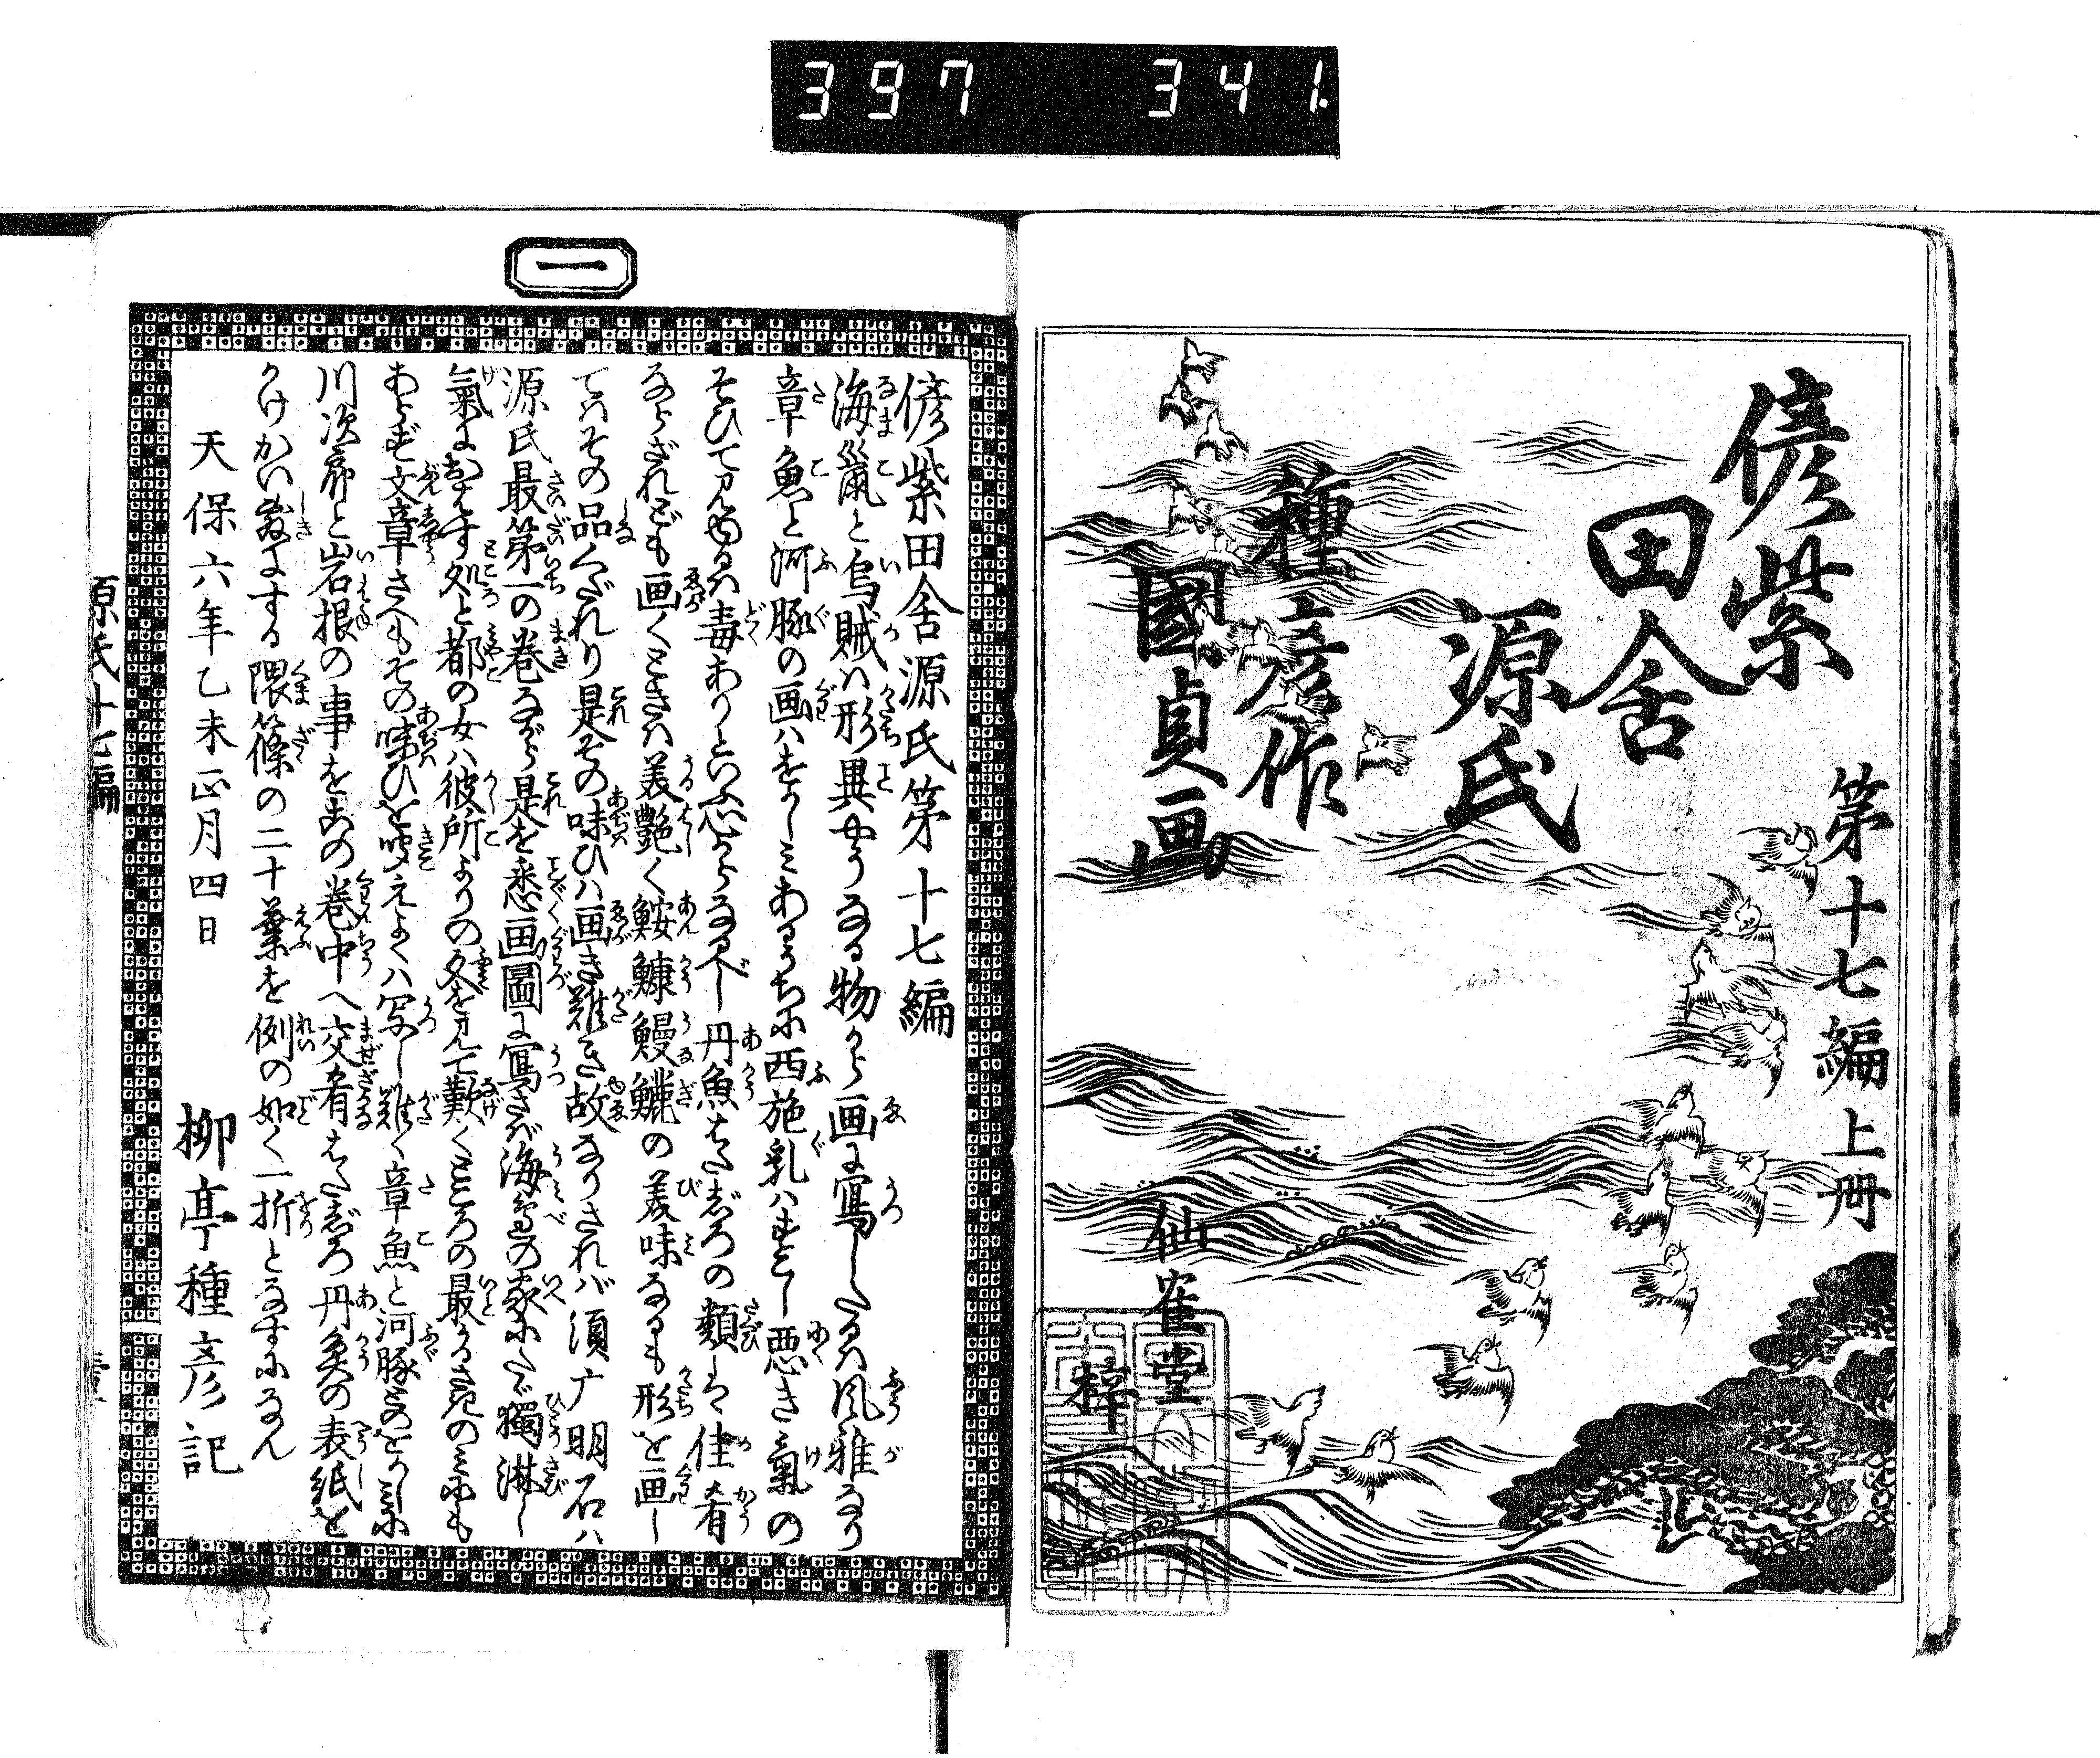 397 341.
偐紫
田舎
源氏
第十七編上冊
種彦作
國貞画
仙隺堂
梓
一
偐紫田舎源氏第十七編
海鼠と烏賊ハ形異やうなる物から画に寫したるハ風雅なり
章魚と河豚の画ハをかしみあるうちに西施乳ハすこし悪き氣の
そひて見ゆるハ毒ありといふ心からなるべし丹魚はたじろの類しも佳肴
ならざれども画くときハ美艶く鮟鱇鰻鱺の美味なるも形を画し
てハその品くだれり是その味ひハ画き難き故なりされバ須广明石ハ
源氏最第一の巻ながら是を悉画圖に寫さバ海邉の家にたゞ獨淋し
氣におはす処と都の女ハ彼所よりの文を見て歎くところの最
あらず文章さへもその味ひを噓えよくハ写し難く章魚と河豚
川次郎と岩根の事をあの巻中へ交肴はたじろ丹魚の表紙を
かけかい敷にする隈篠の二十葉を例の如く一折となすになん
天保六年乙未正月四日
柳亭種彦記
源氏十七編